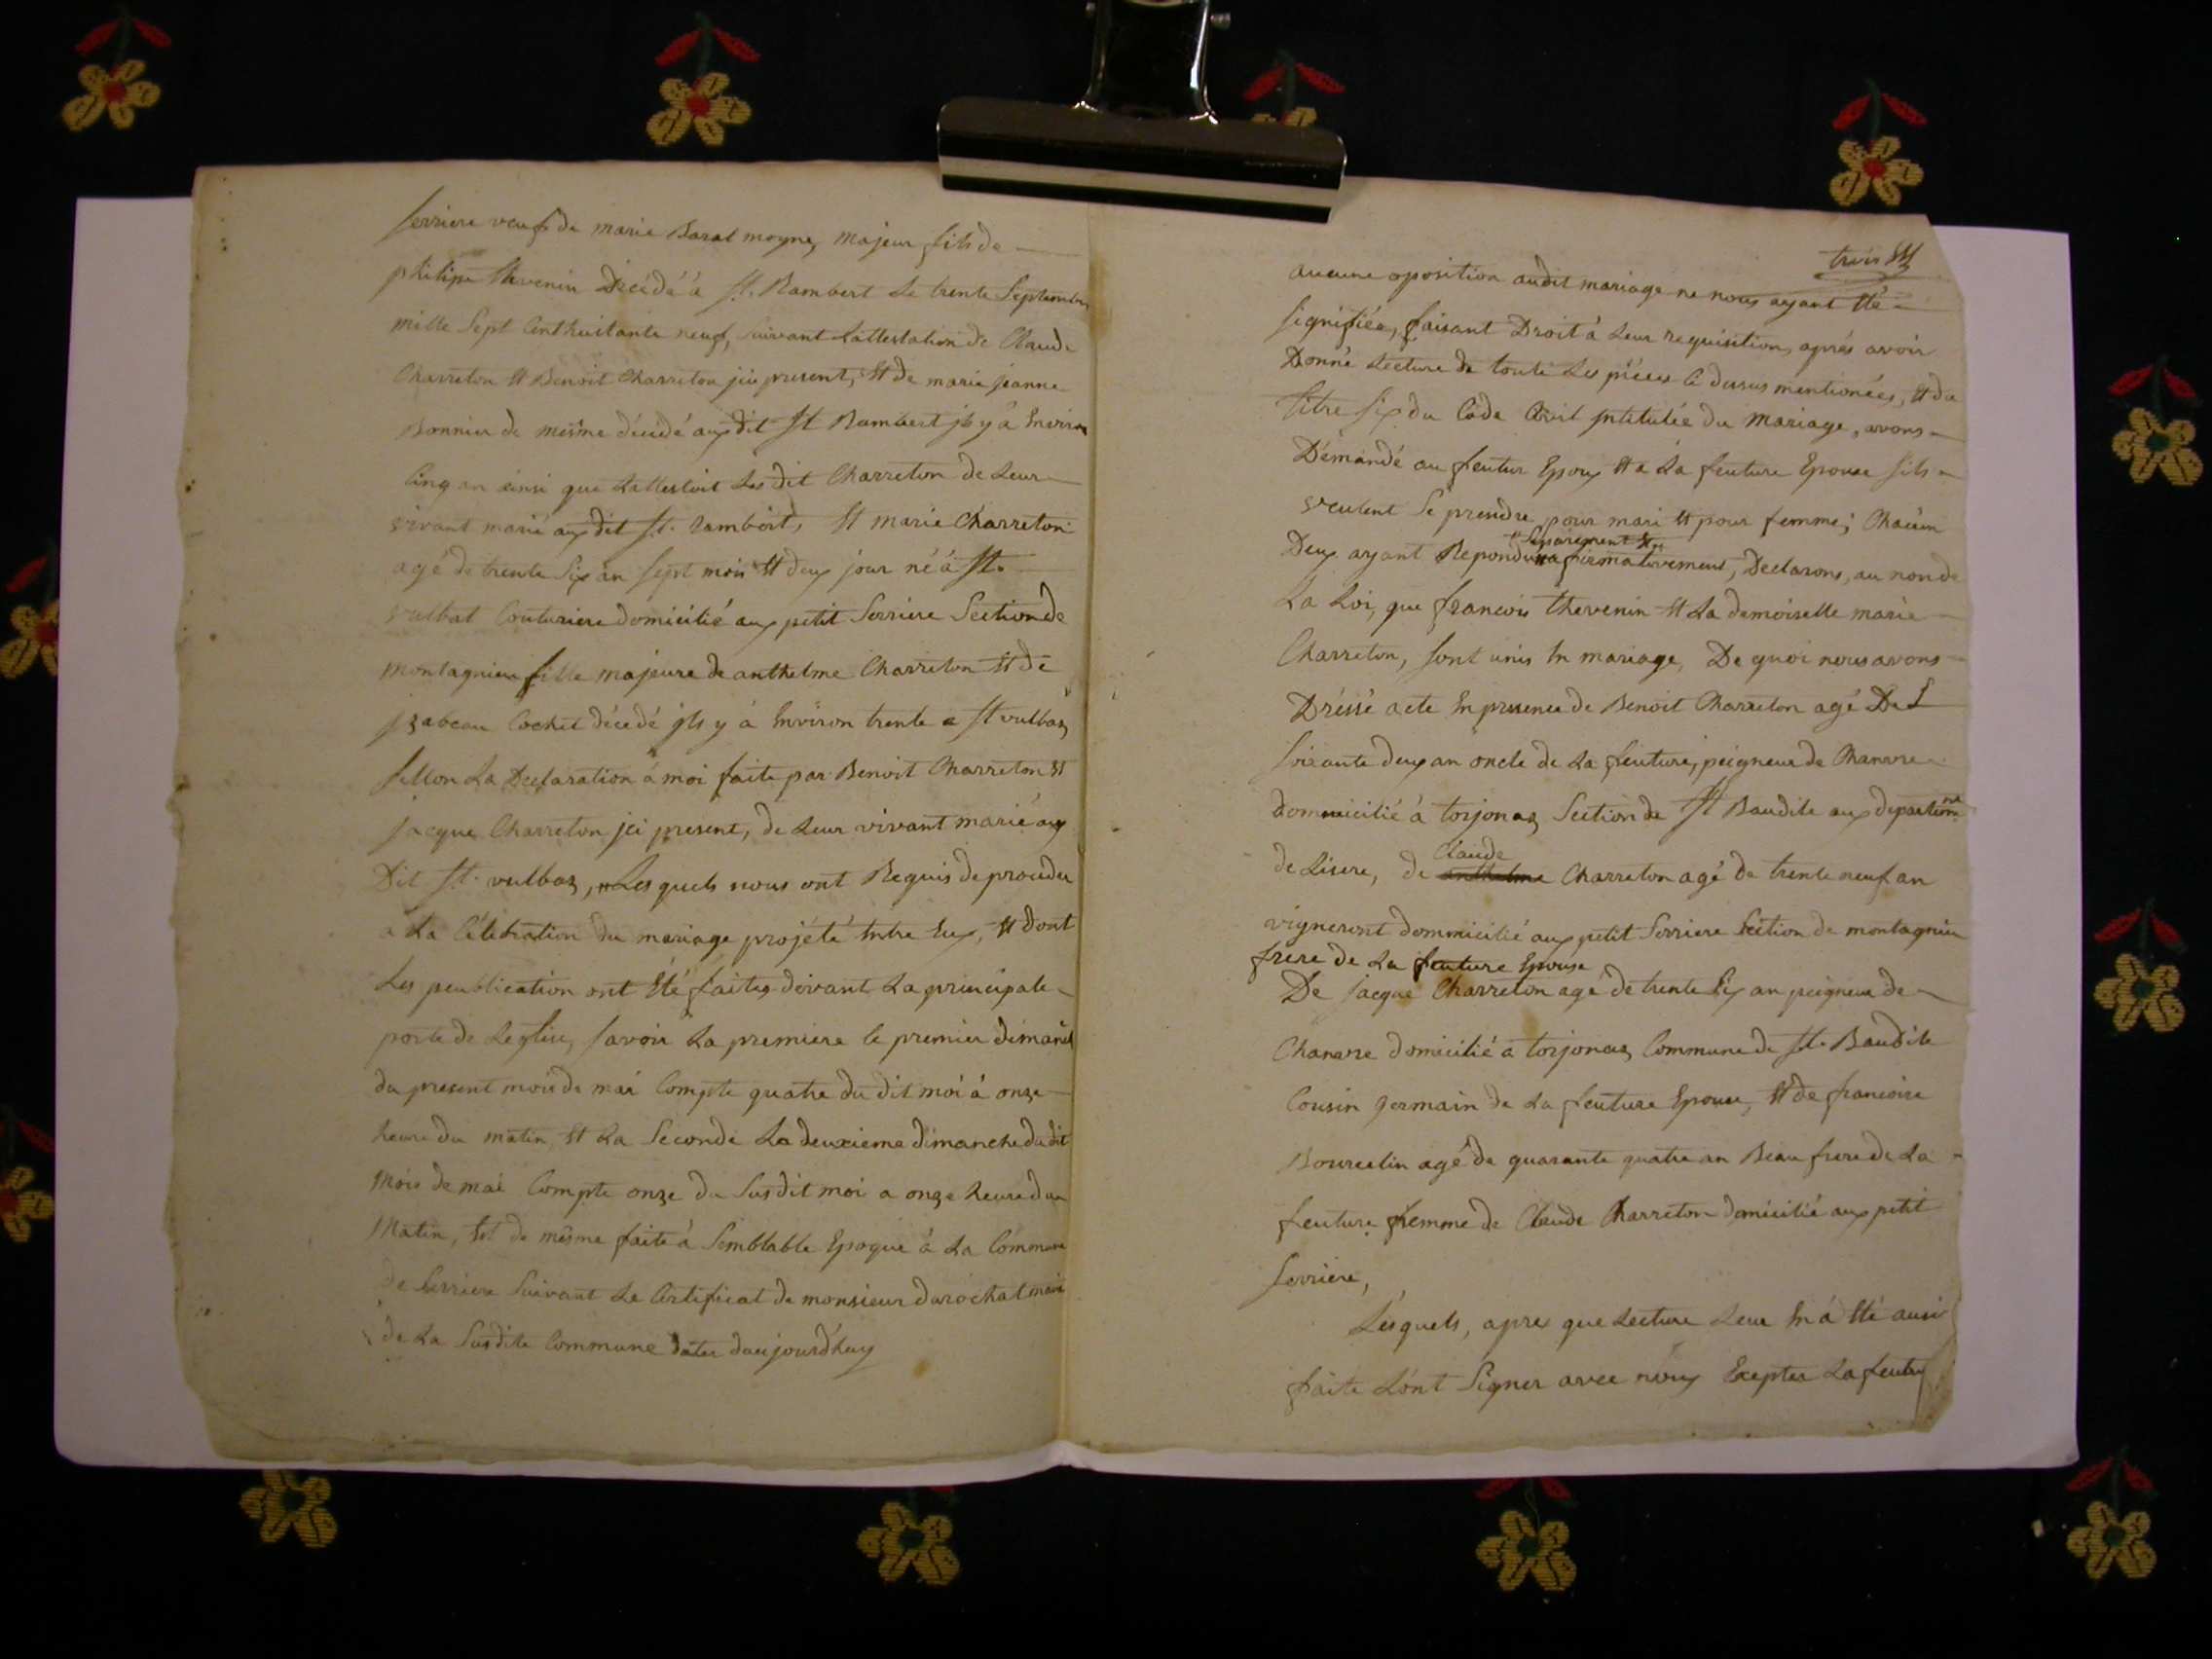 serriere veuf de marie Baral moyne, majeur fils de
philipe thevenin Décédé à St. Rambert le trente Septembre
mille Sept Centhuitante neuf, suivant Lattestation de Claude
Charreton et Benoit Charreton jci present, et de marie jeanne
Bonnier de même décédé aux dit St Rambert jl y à Environ
Cinq an ainsi que Lattestoit Les dit Charreton de Leur
vivant marié aux dit St. rambert, et marie Charreton
agé de trente Six an sept mois et deux jour né à St.
vulbat Couturiere domicilié aux petit Serriere Section de
montagnieu fille majeure de anthelme Charreton et de
jzabeau Cochet décédé jls y à Environ trente a St vulbaz
sellon La Declaration à moi faite par Benoit Charreton et
jacque Charreton jci present, de Leur vivant marié aux
Dit St. vulbaz, Lesquels nous ont Requis de proceder
à La Célébration du mariage projété Entre Eux, et dont
Les peublication ont Eté faites devant La principale
porte de Leglise, savoir La premiere le premier dimanch
du present mois de mai Compte quatre du dit moi à onze
heure du matin, et La Seconde La deuxieme dimanche du dit
Mois de mai Compte onze du Susdit moi a onze heure du
Matin, et de même faite à Semblable Epoque à La Commune
de Serriere Suivant Le Certificat de monsieur durochat maire
de La Susdite Commune dater daujourdhuy
trois
aucune oposition audit mariage ne nous ayant Eté
signifiée, faisant Droit à Leur requisition, aprés avoir
Donné Lecture de toute Les piéces Ci dessus mentionées, et du
titre six du Code Civil jntitulée du Mariage, avons
Démandé au feutur Epoux et a La feuture Epouse sils
veulent Se prendre pour mari et pour femme; Chacun
Separement et
Deux ayant Repondu afirmativement, Declarons, au non de
La Loi, que francois thevenin et La demoiselle marie
Charreton, sont unis En mariage, De quoi nous avons
Dréssé acte En presence de Benoit Charreton agé De
soixante deux an oncle de La feuture, peigneur de Chanvre
dommicilié à torjonaz Section de St Baudile aux departiment
Claude
de Lisere, de anthelme Charreton agé de trente neuf an
vigneront dommicilié aux petit Serriere Séction de montagnieu
frere de La feuture Epouse
De jacque Charreton agé de trente Six an peigneur de
Chanvre domicilié a torjonaz Commune de St. Baudile
Cousin germain de La feuture Epouse, et de francoise
Bourcelin agé de quarante quatre an Beau frere de La
feuture femme de Claude Charreton domicilié aux petit
Serriere,
Lésquels, apres que Lecture Leur En à Eté ausi
faite Lont Signer avec nous Excepter La feutur